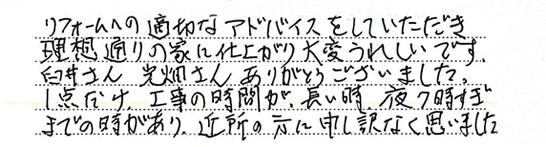 リフォームへの適切なアドバイスをしていただき
理想通りの家に仕上がり大変うれしいです。
臼井さん 光畑さん ありがとうございました。
1点だけ、工事の時間が、長い時 夜7時すぎ
までの時があり、近所の方に申し訳なく思いました